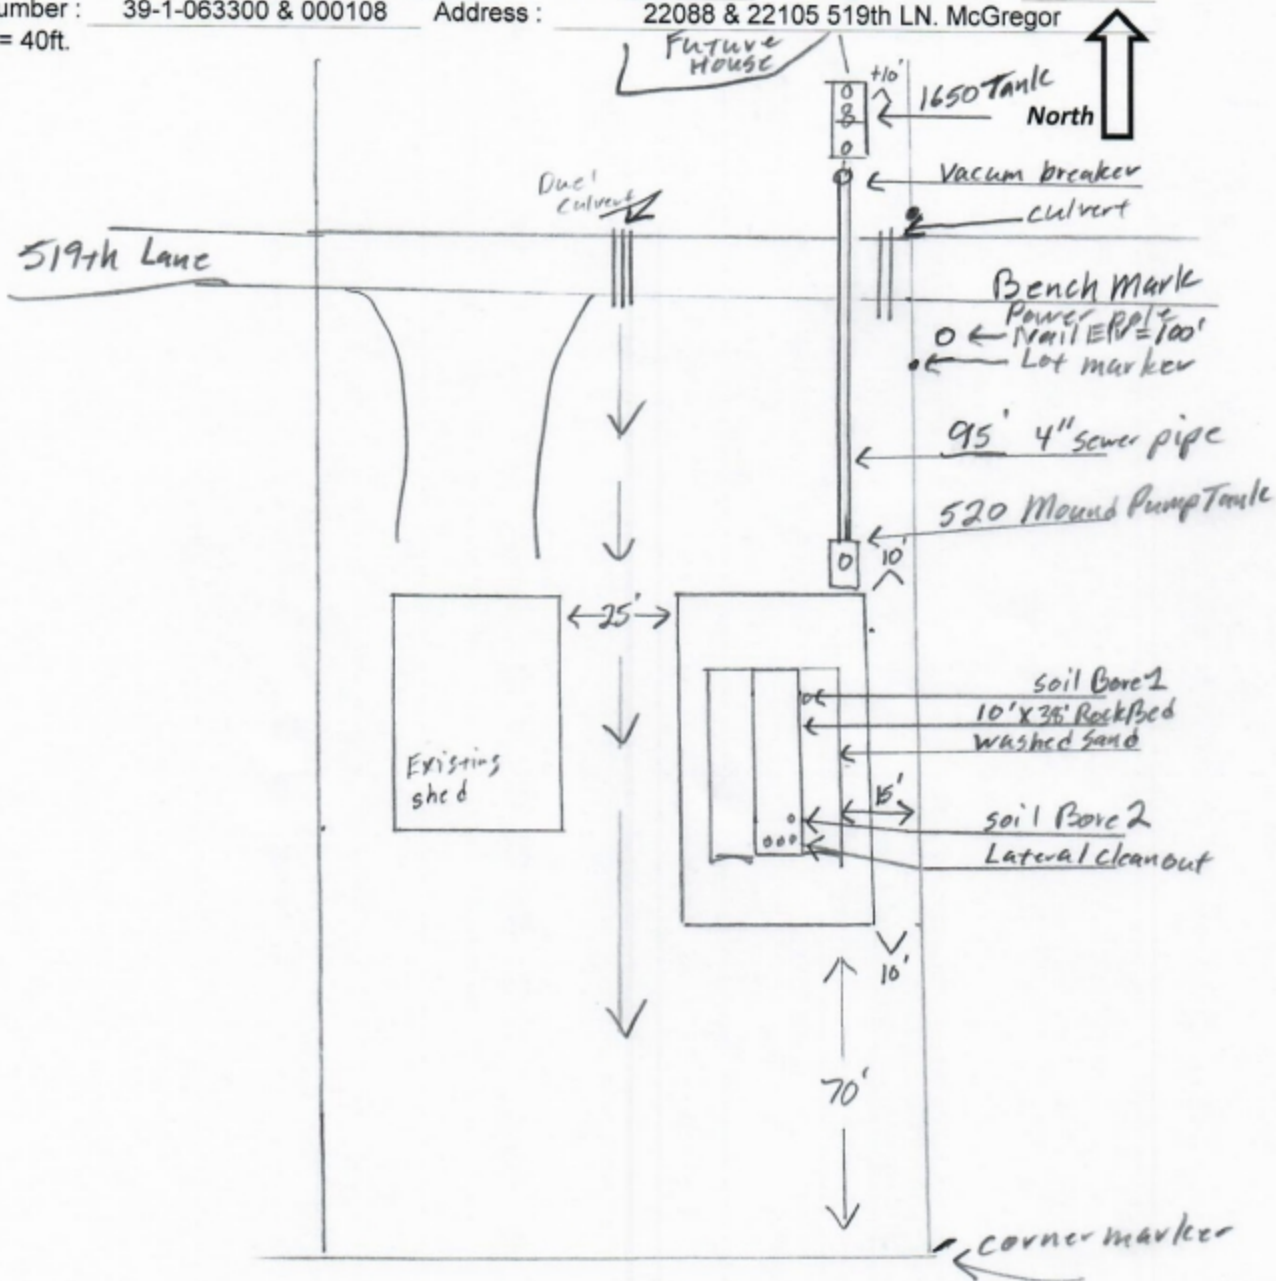 umber : 39-1-063300 & 000108 Address : 22088 & 22105 519th LN. McGregor
= 40ft.
Future
House
+10'
1650 Tank
North
Vacum breaker
Duel
culvert
culvert
519th Lane
Bench Mark
Power Pole
Nail = 100'
Lot marker
95' 4" sewer pipe
520 Mound Pump Tank
10'
25'
soil Bore 1
10' X 38' Rock Bed
washed sand
Existing
shed
15'
soil Bore 2
Lateral cleanout
10'
70'
corner marker